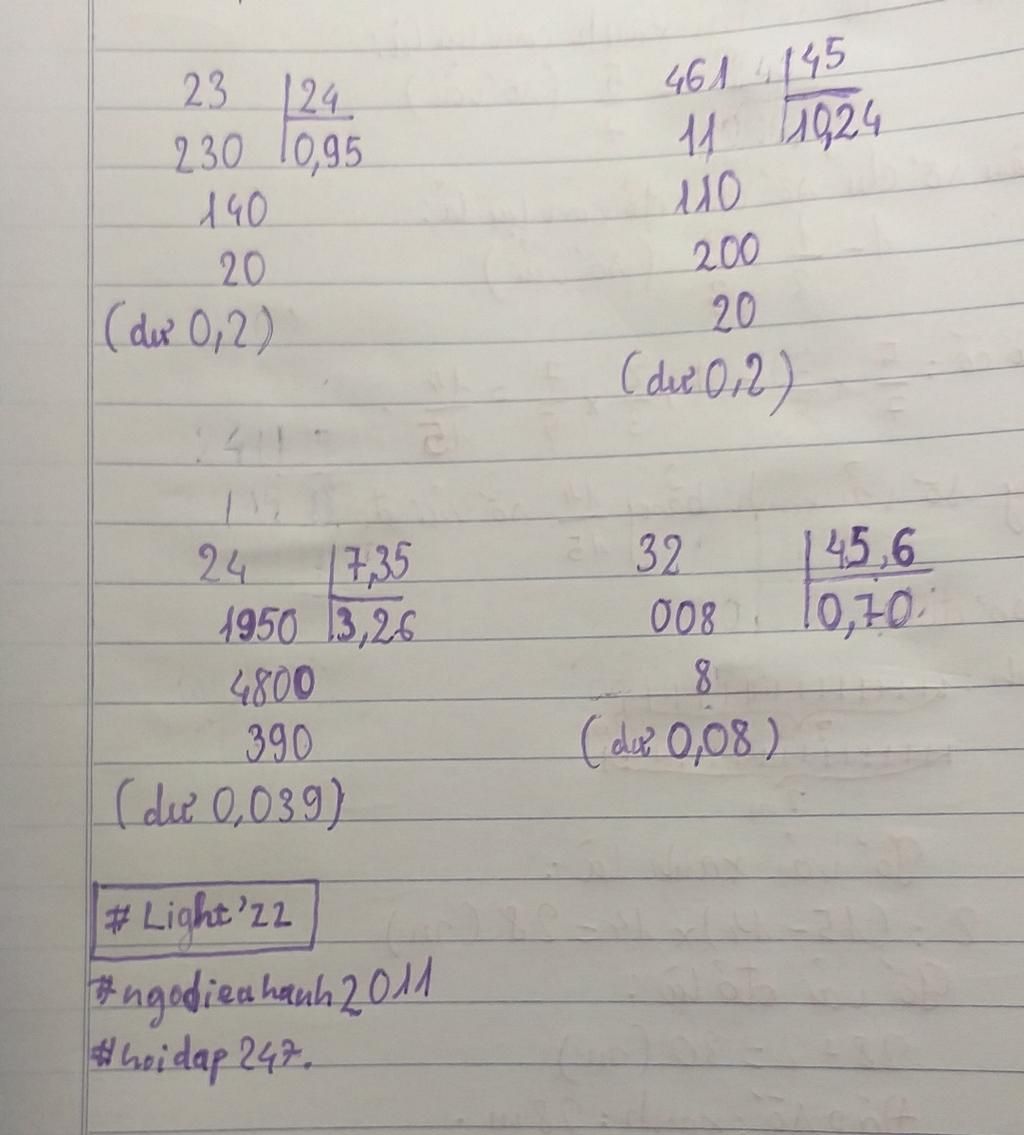 23 24
230 0,95
140
20
(dư 0,2)
461 45
11 10,24
110
200
20
(dư 0,2)
24 7,35
1950 3,26
4800
390
(dư 0,039)
32 45,6
008 0,70
8
(dư 0,08)
# Light'22
#ngodieuhanh2011
#hoidap247.